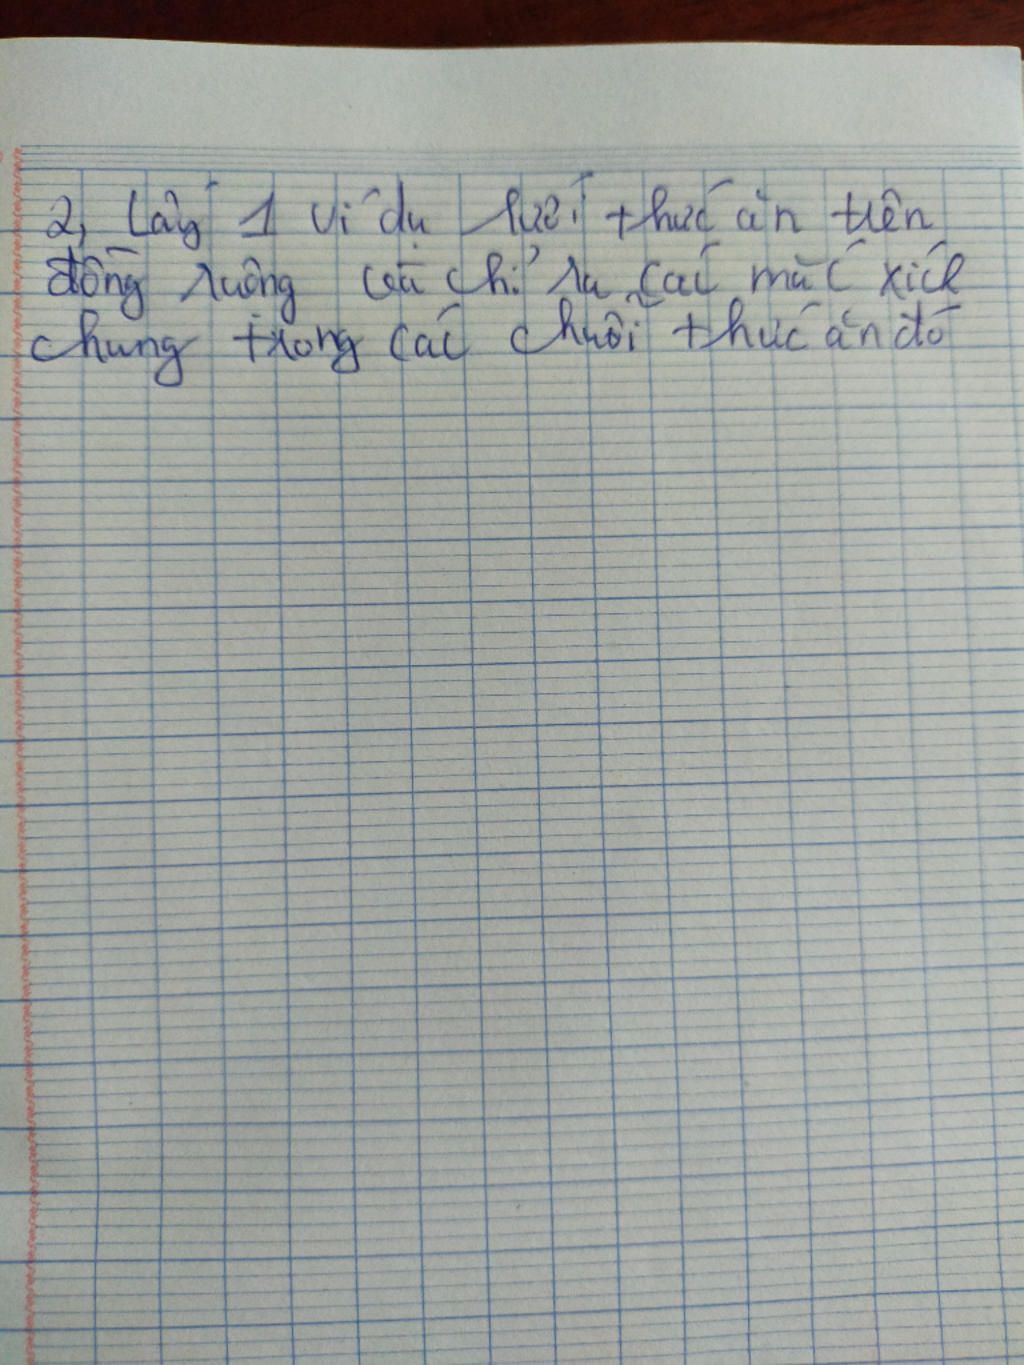 2, Lấy 1 ví dụ lưới thức ăn trên
đồng ruộng và chỉ ra các mắc xích
chung trong các chuỗi thức ăn đó